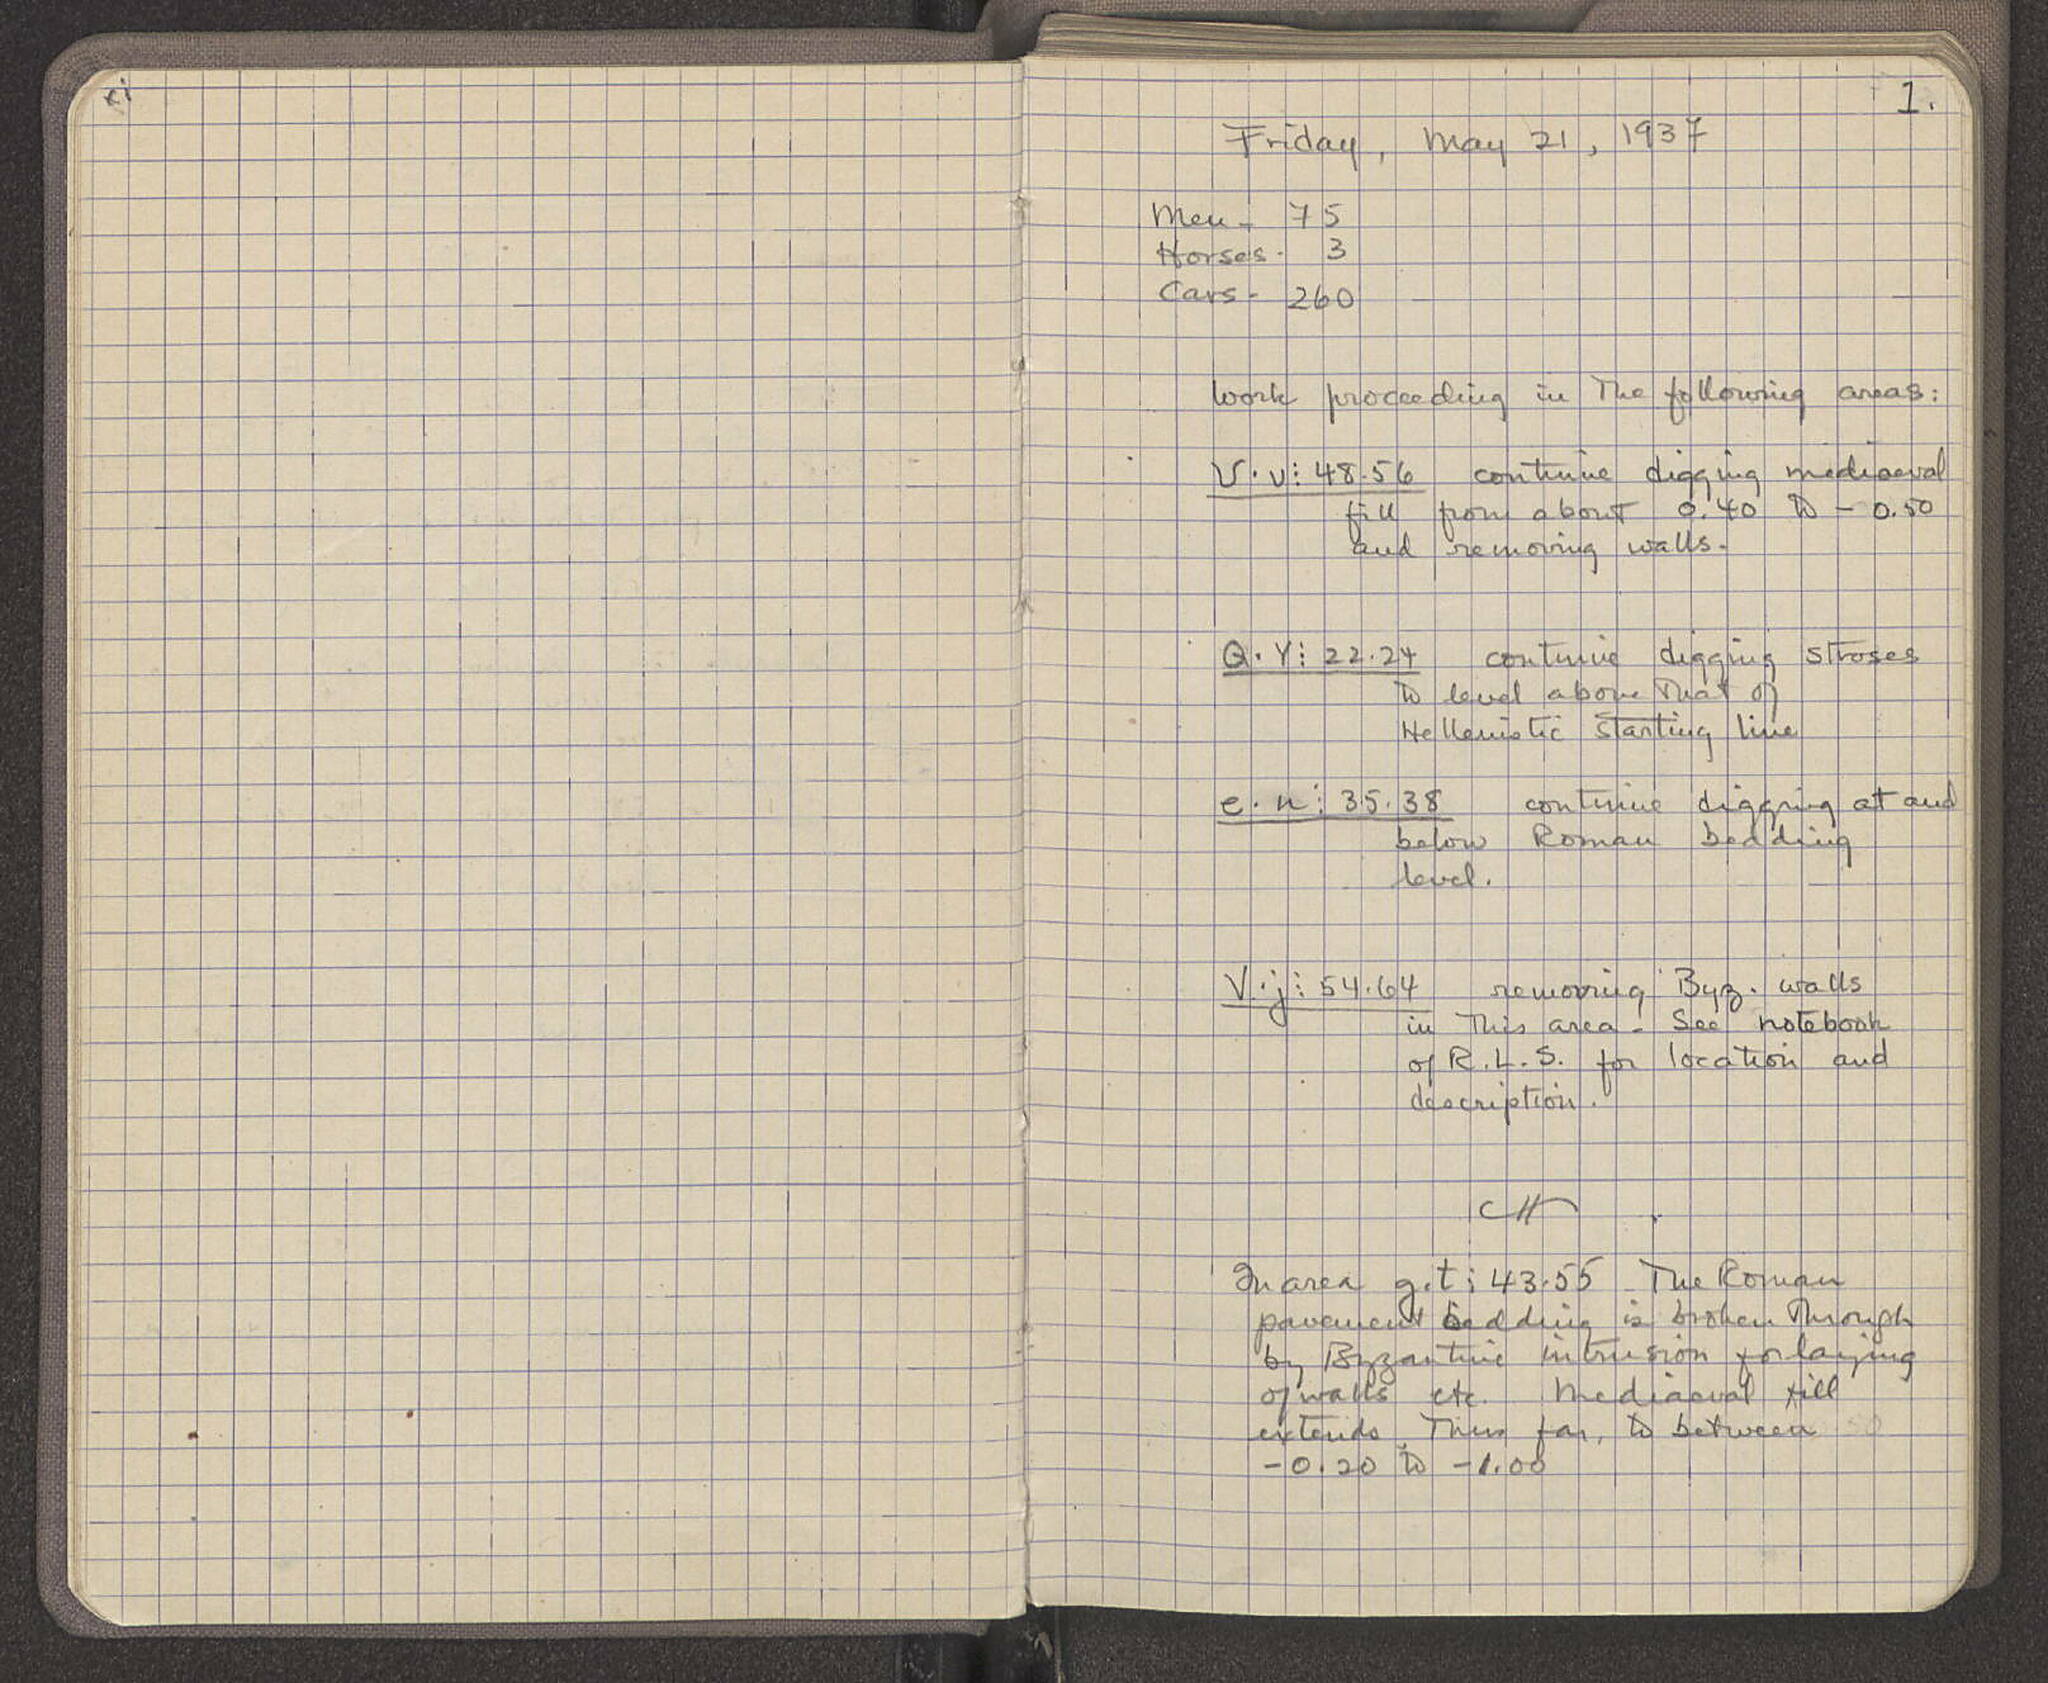 xi
1.
Friday, May 21, 1937
Men - 75
Horses - 3
Cars - 260
Work proceeding in the following areas:
V·v: 48·56 continue digging mediaeval
fill from about 0.40 to - 0.50
and removing walls.
Q·Y: 22·24 continue digging stroses
to level above that of
Hellenistic starting line
e·n: 35·38 continue digging at and
below Roman bedding
level.
V·j: 54·64 removing Byz. walls
in this area - See notebook
of R.L.S. for location and
description.
In area g.t: 43·55 The Roman
pavement bedding is broken through
by Byzantine intrusion for laying
of walls etc. Mediaeval fill
extends, thus far, to between
-0.20 to -1.00